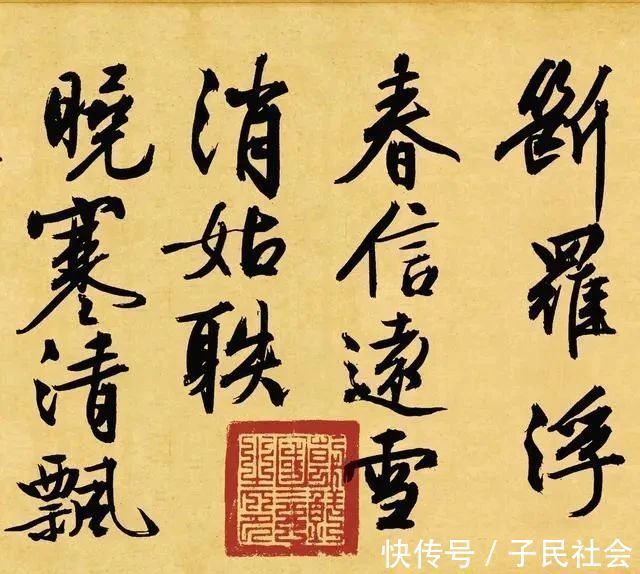 斷羅浮
春信遠雪
消姑䠶
曉寒清飄
快传号 / 子民社会